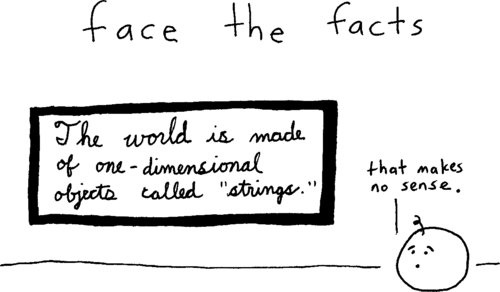 face the facts
The world is made
of one-dimensional
objects called "strings."
that makes
no sense.